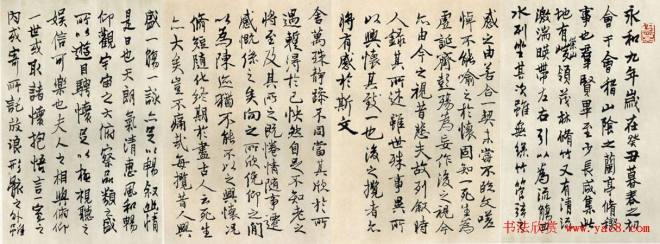 永和九年歲在癸丑暮春之初
會于會稽山陰之蘭亭脩禊
事也群賢畢至少長咸集此
地有崇山峻領茂林脩竹又有清流
激湍暎帶左右引以為流觴曲
水列坐其次雖無絲竹管弦之
感之由若合一契未嘗不臨文嗟
悼不能喻之於懷固知一死生為
虛誕齊彭殤為妄作後之視今
亦由今之視昔悲夫故列敘時
人錄其所述雖世殊事異所
以興懷其致一也後之攬者亦
將有感於斯文
舍萬殊靜躁不同當其欣於所
遇蹔得於己怏然自足不知老之
將至及其所之既惓情隨事遷
感慨係之矣向之所欣俛仰之間
以為陳迹猶不能不以之興懷況
脩短隨化終期於盡古人云死生
亦大矣豈不痛哉每攬昔人興
盛一觴一詠亦足以暢敘幽情
是日也天朗氣清惠風和暢
仰觀宇宙之大俯察品類之盛
所以遊目騁懷足以極視聽之
娛信可樂也夫人之相與俯仰
一世或取諸懷抱悟言一室之
內或寄所託放浪形骸之外雖
书法欣赏
www.yac8.com